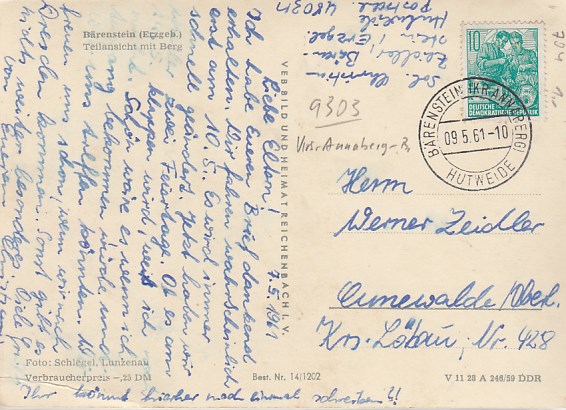 Bärenstein (Erzgeb.)
Teilansicht mit Berg
7.5.1961
Liebe Eltern!
Ich habe Euren Brief dankend
erhalten. Wir fahren wahrscheinlich
erst am 10.8. Es wird immer
schnell geändert. Jetzt haben wir
zwei Feiertage. Ob es am
klappen wird, weiß ich
Schön wäre es wenn ich
bekommen würde und
uns treffen könnten. Wir
freuen uns schon, wenn wir nach
Dresden kommen. Sonst gibt es
nichts weiter besonderes. Viele
von Eurem
Ihr könnt hierher noch einmal schreiben
Sol. Christian
Zeidler, Bären-
stein / Erzgeb.
Hutweide
Postfach 4803
VEB BILD UND HEIMAT REICHENBACH I. V.
10
DEUTSCHE
DEMOKRATISCHE REPUBLIK
BÄRENSTEIN (KR. ANNABERG)
09.5.61-10
HUTWEIDE
9303
Krs. Annaberg-B.
Herrn
Werner Zeidler
Cunewalde/Oberl.
Krs. Löbau, Nr. 428
Foto: Schlegel, Lunzenau
Verbraucherpreis -,25 DM
Best. Nr. 14/1202
V 11 28 A 246/59 DDR